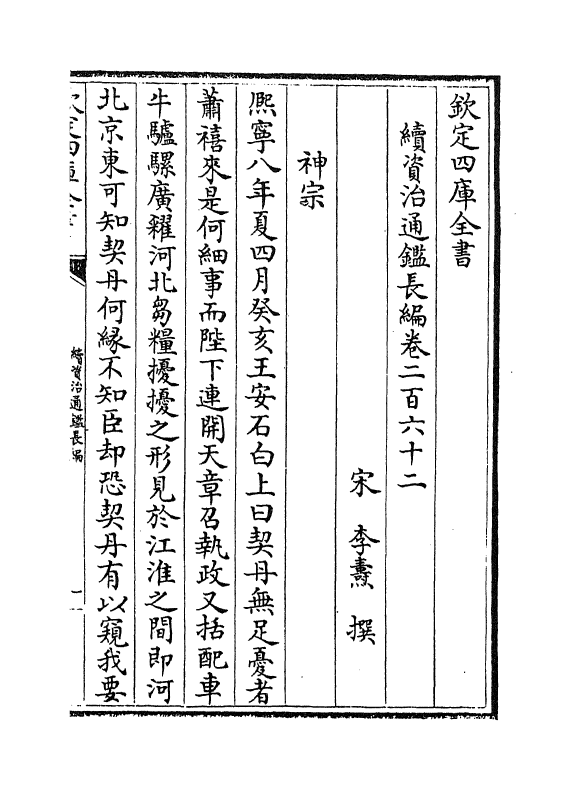 欽定四庫全書
續資治通鑑長編卷二百六十二
宋 李燾 撰
神宗
熈寧八年夏四月癸亥王安石白上曰契丹無足憂者
蕭禧來是何細事而陛下連開天章召執政又括配車
牛驢騾廣糴河北芻糧擾擾之形見於江淮之間即河
北京東可知契丹何縁不知臣却恐契丹有以窺我要
欽定四庫全書
續資治通鑑長編
一